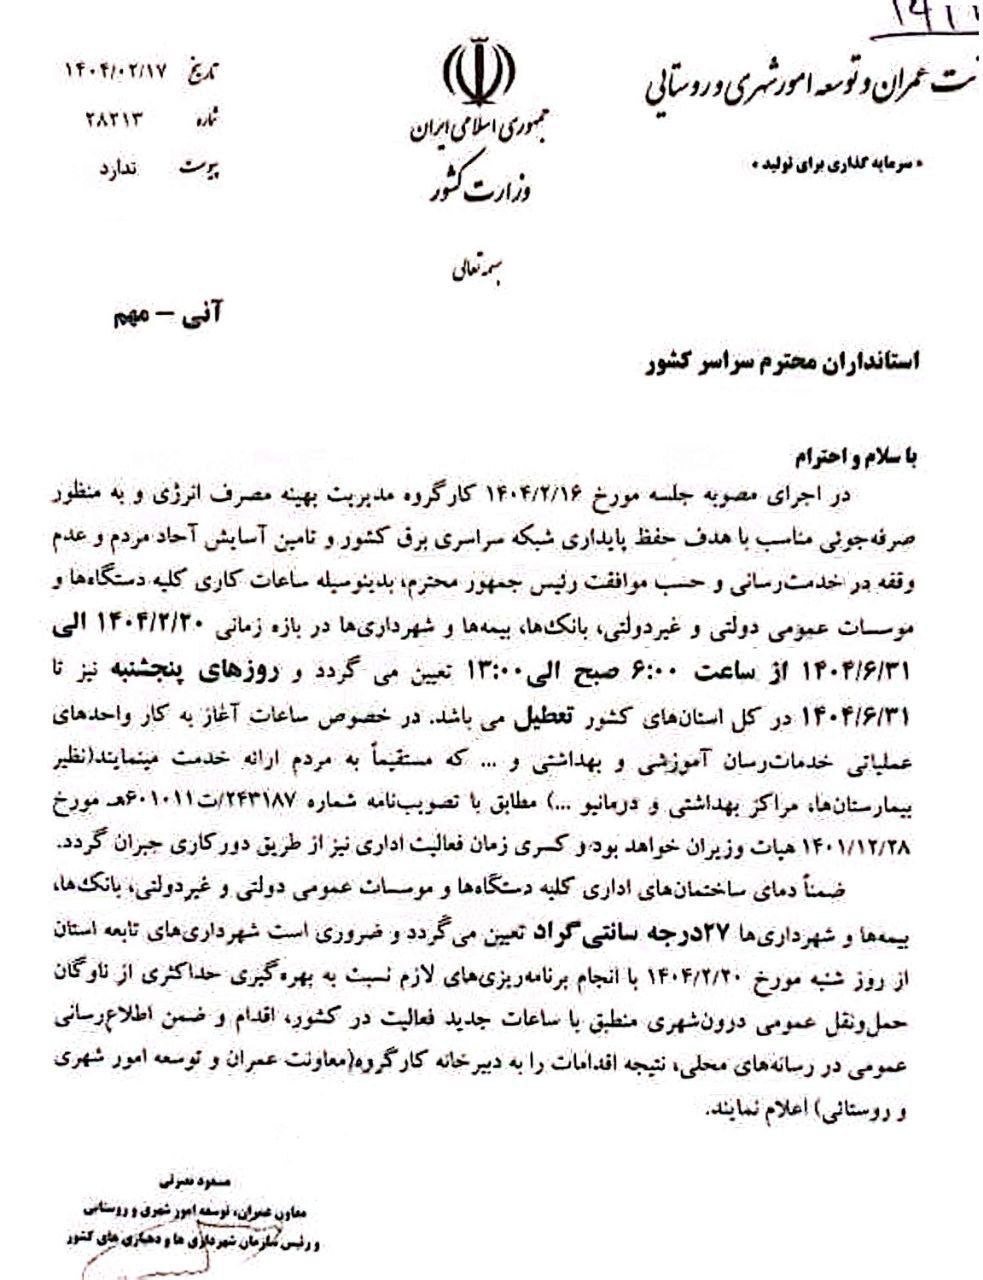 جمهوری اسلامی ایران
وزارت کشور
عمران و توسعه امور شهری و روستایی
« سرمایه گذاری برای تولید »
تاریخ ۱۴۰۴/۰۲/۱۷
شماره ۲۸۲۱۳
پیوست ندارد
بسمه تعالی
آنی – مهم
استانداران محترم سراسر کشور
با سلام و احترام
در اجرای مصوبه جلسه مورخ ۱۴۰۴/۲/۱۶ کارگروه مدیریت بهینه مصرف انرژی و به منظور
صرفه‌جوئی مناسب با هدف حفظ پایداری شبکه سراسری برق کشور و تامین آسایش آحاد مردم و عدم
وقفه در خدمت‌رسانی و حسب موافقت رئیس جمهور محترم، بدینوسیله ساعات کاری کلیه دستگاه‌ها و
موسسات عمومی دولتی و غیردولتی، بانک‌ها، بیمه‌ها و شهرداری‌ها در بازه زمانی ۱۴۰۴/۲/۲۰ الی
۱۴۰۴/۶/۳۱ از ساعت ۶:۰۰ صبح الی ۱۳:۰۰ تعیین می گردد و روزهای پنجشنبه نیز تا
۱۴۰۴/۶/۳۱ در کل استان‌های کشور تعطیل می باشد. در خصوص ساعات آغاز به کار واحدهای
عملیاتی خدمات‌رسان آموزشی و بهداشتی و ... که مستقیماً به مردم ارائه خدمت مینمایند(نظیر
بیمارستان‌ها، مراکز بهداشتی و درمانیو ...) مطابق با تصویب‌نامه شماره ۲۴۳۱۸۷/ت۶۰۱۰۱۱هـ مورخ
۱۴۰۱/۱۲/۲۸ هیات وزیران خواهد بود و کسری زمان فعالیت اداری نیز از طریق دورکاری جبران گردد.
ضمناً دمای ساختمان‌های اداری کلیه دستگاه‌ها و موسسات عمومی دولتی و غیردولتی، بانک‌ها،
بیمه‌ها و شهرداری‌ها ۲۷درجه سانتی‌گراد تعیین می‌گردد و ضروری است شهرداری‌های تابعه استان
از روز شنبه مورخ ۱۴۰۴/۲/۲۰ با انجام برنامه‌ریزی‌های لازم نسبت به بهره‌گیری حداکثری از ناوگان
حمل‌ونقل عمومی درون‌شهری منطبق با ساعات جدید فعالیت در کشور، اقدام و ضمن اطلاع‌رسانی
عمومی در رسانه‌های محلی، نتیجه اقدامات را به دبیرخانه کارگروه(معاونت عمران و توسعه امور شهری
و روستائی) اعلام نمایند.
مسعود نصرتی
معاون عمران، توسعه امور شهری و روستایی
و رئیس سازمان شهرداری ها و دهیاری های کشور